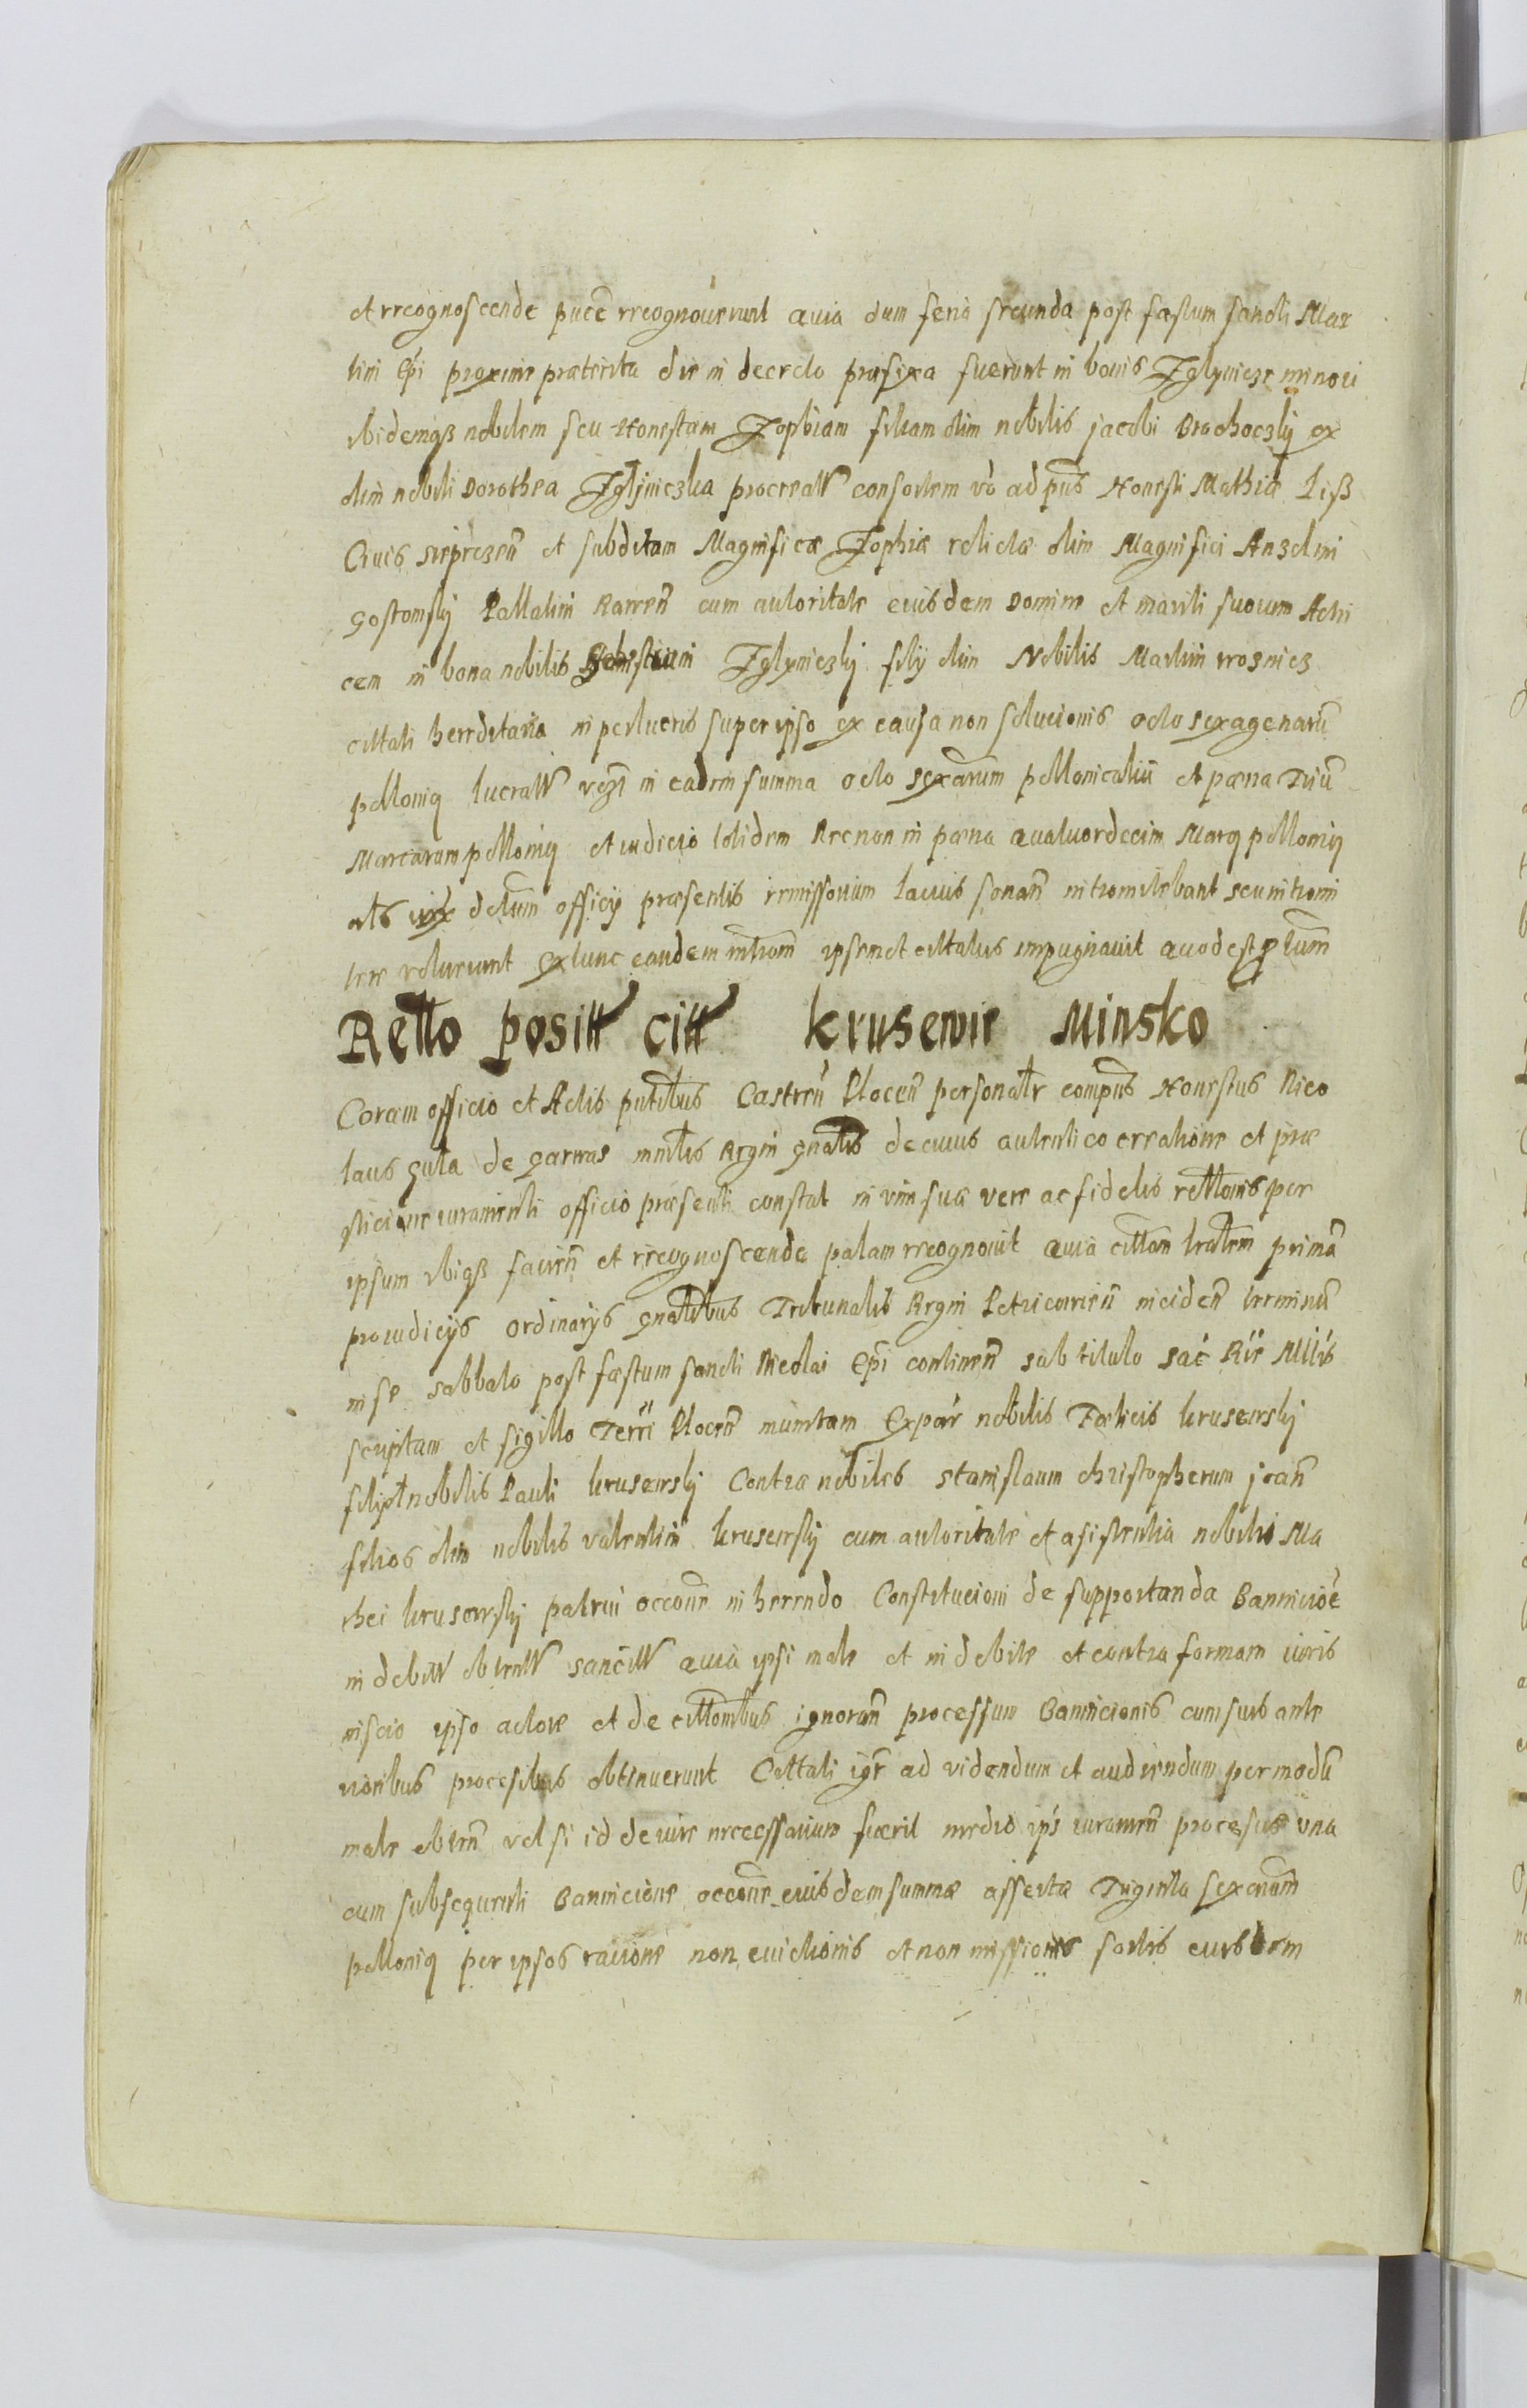 et recognoscende puce recognoverunt quia dum feria secunda post fæstum sancti Mar
tini Epi proxime præterita die in decreto præfixa fuerunt in bonis Zglynicze minori
ibidemqz nobilem seu Honestam Zophiam filiam olim nobilis jacobi Brochoczky ex
olim nobili Dorothea Zglyniczka procreatt consortem vo ad puns Honesti Mathiæ Liss
Civis sieprczen et subditam Magnificæ Zophiæ relictæ olim Magnifici Anzelmi
Gostomsky Pallatini Raven cum autoritate eiusdem Domine et mariti suorum Actri
cem in bona nobilis Zglyniczky filij olim Nobilis Martini
cittati herreditaria in perlucris super ipso ex causa non solucionis octo sexagenaru
pollonią lucratt in eadem summa octo sexarum pollonicaliu et pæna Triu
Marcarum pollonią et iudicio totidem Necnon in pæna quatuordecim Marą pollonią
als decretum officij præsentis remissorium lacius sonan intromitebant seu intromi
tere voluerunt Extunc eandem introm ipsemet cittatus impugnavit quod est ptum
Retto positt citt krusewie Minsko
Coram officio et Actis pntibus Castren Plocen personalr compns Honestus Nico
laus guta de garwas mnrlis Regni gnalis de cuius autentico creatione et præ
sticione iuramenti officio præsenti constat in vim suæ vere ac fidelis rettonis per
ipsum ubiqz facien et recognoscende palam recognovit quia cittom lratem prima
pro iudicijs ordinarys gnalibus Tribunalis Regni Petricovien inciden terminu
in se sabbato post fæstum sancti Nicolai Epi continen sub titulo sac Rie Mttis
scriptam et sigillo Terri Plocen munitam Expar nobilis Fælicis krusewsky
filij nobilis Pauli krusewsky Contra nobiles stanislaum christopherum joan
filios olim nobilis valentini krusewsky cum autoritate et asistentia nobilis Ma
thei krusewsky patrui occone in herendo Constitucioni de supportanda Bannicioe
indebitt obtentt sancitt quia ipsi male et indebite et contra formam iuris
inscio ipso actore et de cittonibus ignoran processum Bannicionis cum suis ante
rioribus procesibus obtinuerunt Cittati igr ad videndum et audiendum per modu
male obten vel si id de iure necessarium fuerit medio ips iuramen procesus una
cum subsequenti Bannicione occone eiusdem summæ assertæ Triginta sexarum
pollonią per ipsos racione non evictionis et non missionis sortis eiusdem